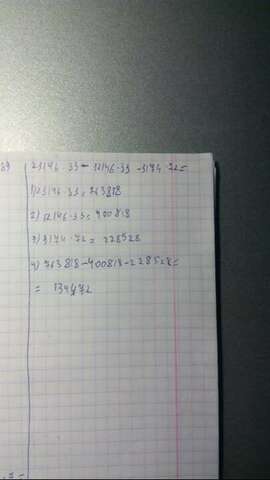 23146·33-12146·33-3174·72=
1)23146·33=763818
2)12146·33=400818
3)3174·72=228528
4)763818-400818-228528=
= 134472